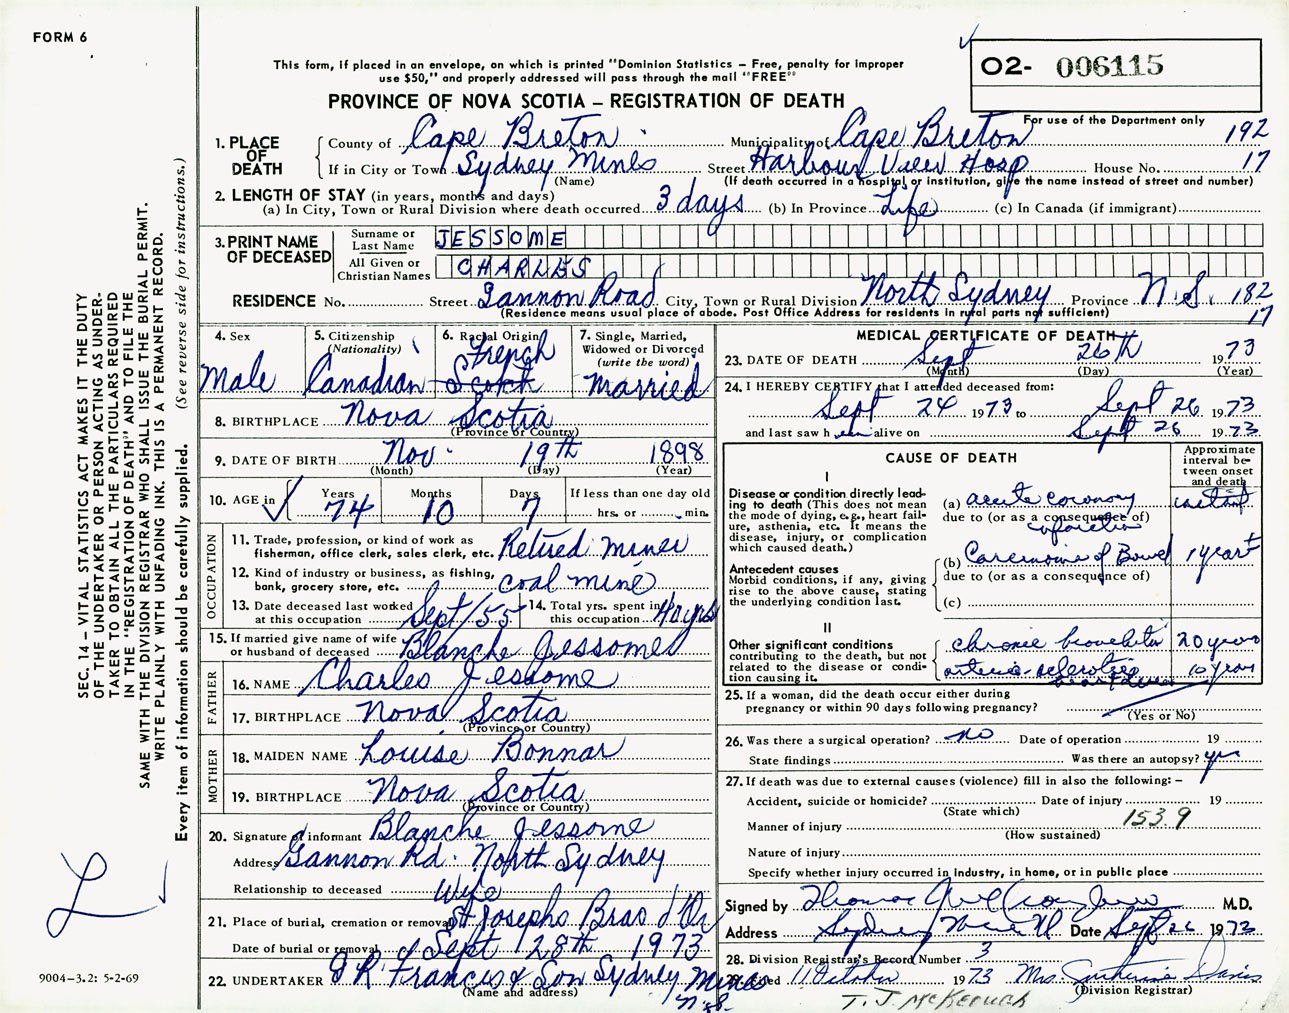 FORM 6
This form, if placed in an envelope, on which is printed "Dominion Statistics – Free, penalty for improper
use $50," and properly addressed will pass through the mail "FREE"
PROVINCE OF NOVA SCOTIA – REGISTRATION OF DEATH
O2- 006115
For use of the Department only
1. PLACE OF DEATH County of Cape Breton Municipality of Cape Breton 192
If in City or Town Sydney Mines Street Harbour View Hosp House No. 17
(Name) (If death occurred in a hospital or institution, give the name instead of street and number)
2. LENGTH OF STAY (in years, months and days)
(a) In City, Town or Rural Division where death occurred 3 days (b) In Province Life (c) In Canada (if immigrant)
3. PRINT NAME OF DECEASED Surname or Last Name JESSOME
All Given or Christian Names CHARLES
RESIDENCE No. Street Gannon Road City, Town or Rural Division North Sydney Province N.S. 182
(Residence means usual place of abode. Post Office Address for residents in rural parts not sufficient) 17
4. Sex Male
5. Citizenship (Nationality) Canadian
6. Racial Origin French Scotch
7. Single, Married, Widowed or Divorced (write the word) Married
8. BIRTHPLACE Nova Scotia
(Province or Country)
9. DATE OF BIRTH Nov. 19th 1898
(Month) (Day) (Year)
10. AGE in Years 74 Months 10 Days 7 If less than one day old
hrs. or min.
OCCUPATION
11. Trade, profession, or kind of work as
fisherman, office clerk, sales clerk, etc. Retired Miner
12. Kind of industry or business, as fishing,
bank, grocery store, etc. coal mine
13. Date deceased last worked
at this occupation Sept/55
14. Total yrs. spent in
this occupation 40 yrs
15. If married give name of wife
or husband of deceased Blanche Jessome
FATHER
16. NAME Charles Jessome
17. BIRTHPLACE Nova Scotia
(Province or Country)
MOTHER
18. MAIDEN NAME Louise Bonnar
19. BIRTHPLACE Nova Scotia
(Province or Country)
20. Signature of informant Blanche Jessome
Address Gannon Rd. North Sydney
Relationship to deceased Wife
21. Place of burial, cremation or removal St Josephs Bras d'Or
Date of burial or removal Sept 28th 1973
22. UNDERTAKER Francis & Son Sydney Mines
(Name and address) N.S.
MEDICAL CERTIFICATE OF DEATH
23. DATE OF DEATH Sept 26th 1973
(Month) (Day) (Year)
24. I HEREBY CERTIFY that I attended deceased from:
Sept 24 1973 to Sept 26 1973
and last saw h alive on Sept 26 1973
CAUSE OF DEATH
Approximate interval between onset and death
I
Disease or condition directly leading to death (This does not mean the mode of dying, e.g., heart failure, asthenia, etc. It means the disease, injury, or complication which caused death.)
(a) acute coronary instant
due to (or as a consequence of)
Antecedent causes
Morbid conditions, if any, giving rise to the above cause, stating the underlying condition last.
(b) Carcinoma of Bowel 1 year +
due to (or as a consequence of)
(c)
II
Other significant conditions
contributing to the death, but not related to the disease or condition causing it.
chronic bronchitis 20 years
arterio-sclerotic heart disease 10 years
25. If a woman, did the death occur either during
pregnancy or within 90 days following pregnancy?
(Yes or No)
26. Was there a surgical operation? no Date of operation 19
State findings Was there an autopsy? yes
27. If death was due to external causes (violence) fill in also the following: –
Accident, suicide or homicide? Date of injury 19
(State which) 153.9
Manner of injury
(How sustained)
Nature of injury
Specify whether injury occurred in industry, in home, or in public place
Signed by Thomas M.D.
Address Sydney Mines Date Sept 26 1973
28. Division Registrar's Record Number 3
29. Filed 11 October 1973 Mrs Davis
(Division Registrar)
T. J. McKeough
SEC. 14 – VITAL STATISTICS ACT MAKES IT THE DUTY
OF THE UNDERTAKER OR PERSON ACTING AS UNDER-
TAKER TO OBTAIN ALL THE PARTICULARS REQUIRED
IN THE "REGISTRATION OF DEATH" AND TO FILE THE
SAME WITH THE DIVISION REGISTRAR WHO SHALL ISSUE THE BURIAL PERMIT.
WRITE PLAINLY WITH UNFADING INK. THIS IS A PERMANENT RECORD.
Every item of information should be carefully supplied. (See reverse side for instructions.)
9004-3.2: 5-2-69